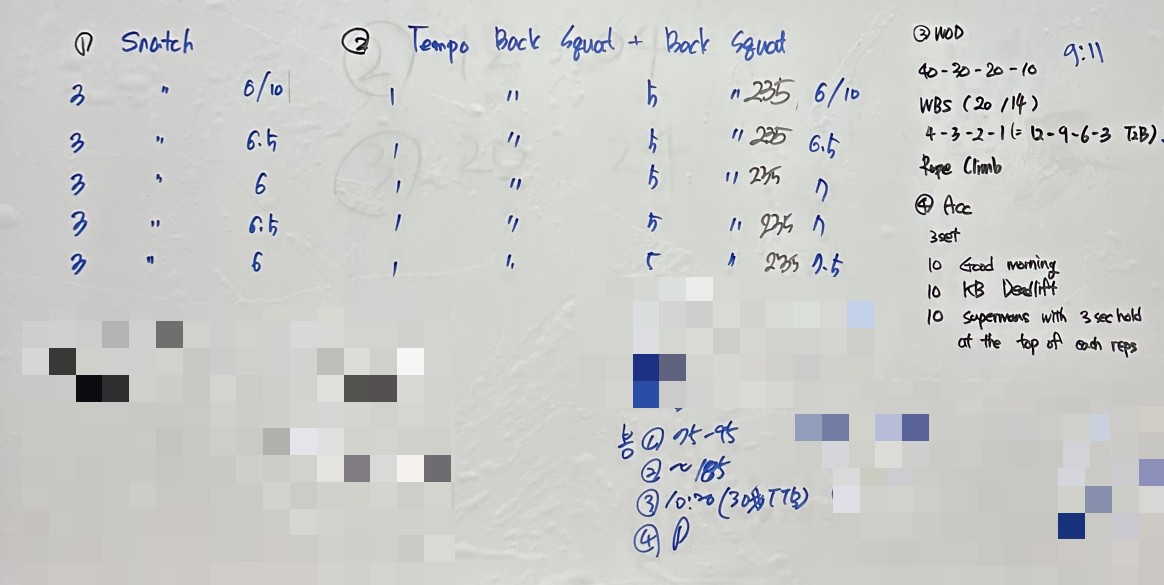 ① Snatch
3 " 6/10
3 " 6.5
3 " 6
3 " 6.5
3 " 6
② Tempo Back Squat + Back Squat
1 " 5 " 235 6/10
1 " 5 " 235 6.5
1 " 5 " 235 7
1 " 5 " 235 7
1 " 5 " 235 7.5
③ WOD
9:11
40-30-20-10
WBS (20/14)
4-3-2-1 (= 12-9-6-3 T2B).
Rope Climb
④ Acc
3set
10 Good morning
10 KB Deadlift
10 supermans with 3 sec hold
at the top of each reps
봉 ① 75-95
② ~185
③ 10:20 (30 TTB)
④